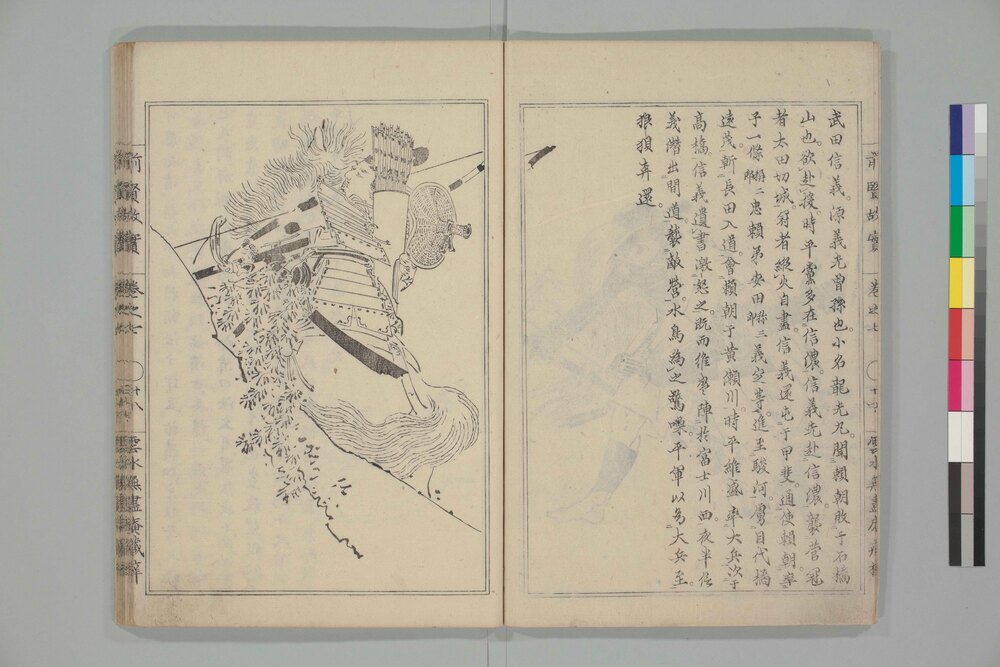 武田信義。源義光曾孫也。小名龍光丸。聞賴朝敗于石橋
山也。欲赴援。時平黨多在信濃。信義先赴信濃。襲菅冠
者太田切城。冠者縱火自盡。信義還屯于甲斐。通使賴朝。率
子一條次郎忠賴弟安田三郎義定等。進至駿河。虜目代橘
遠茂。斬長田入道。會賴朝于黄瀬川。時平維盛率大兵次于
高橋。信義遺書激怒之。既而維盛陣於富士川西。夜半信
義潜出間道。襲敵營。水鳥為之驚噪。平軍以為大兵至。
狼狽奔還。
前賢故實 卷之七
雲水無盡庵
前賢故實 卷之七 十八 雲水無盡庵藏梓